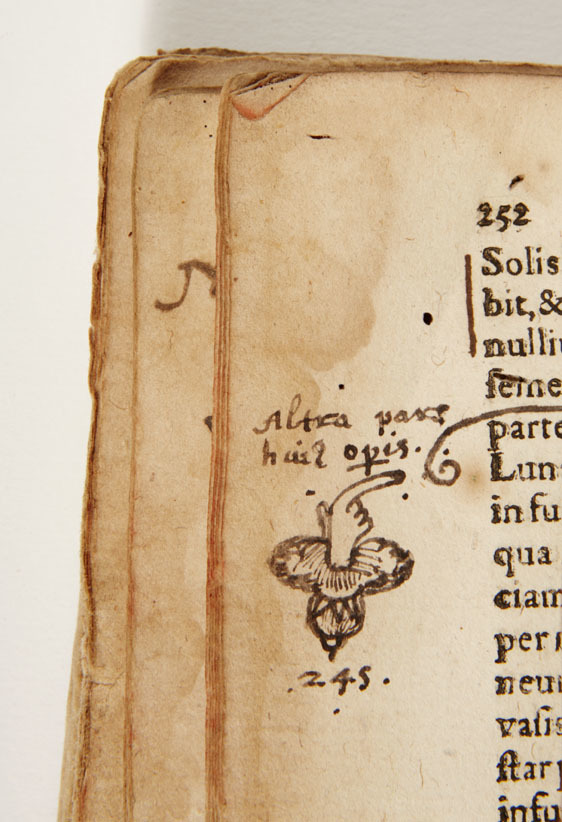 252
Solis
bit,&
nulliu
ſeme
parte
Lun
in fu
qua
ciam
per
neu
vaſis
ſtar
infu
Altra pars
huiꝰ opis.
.245.